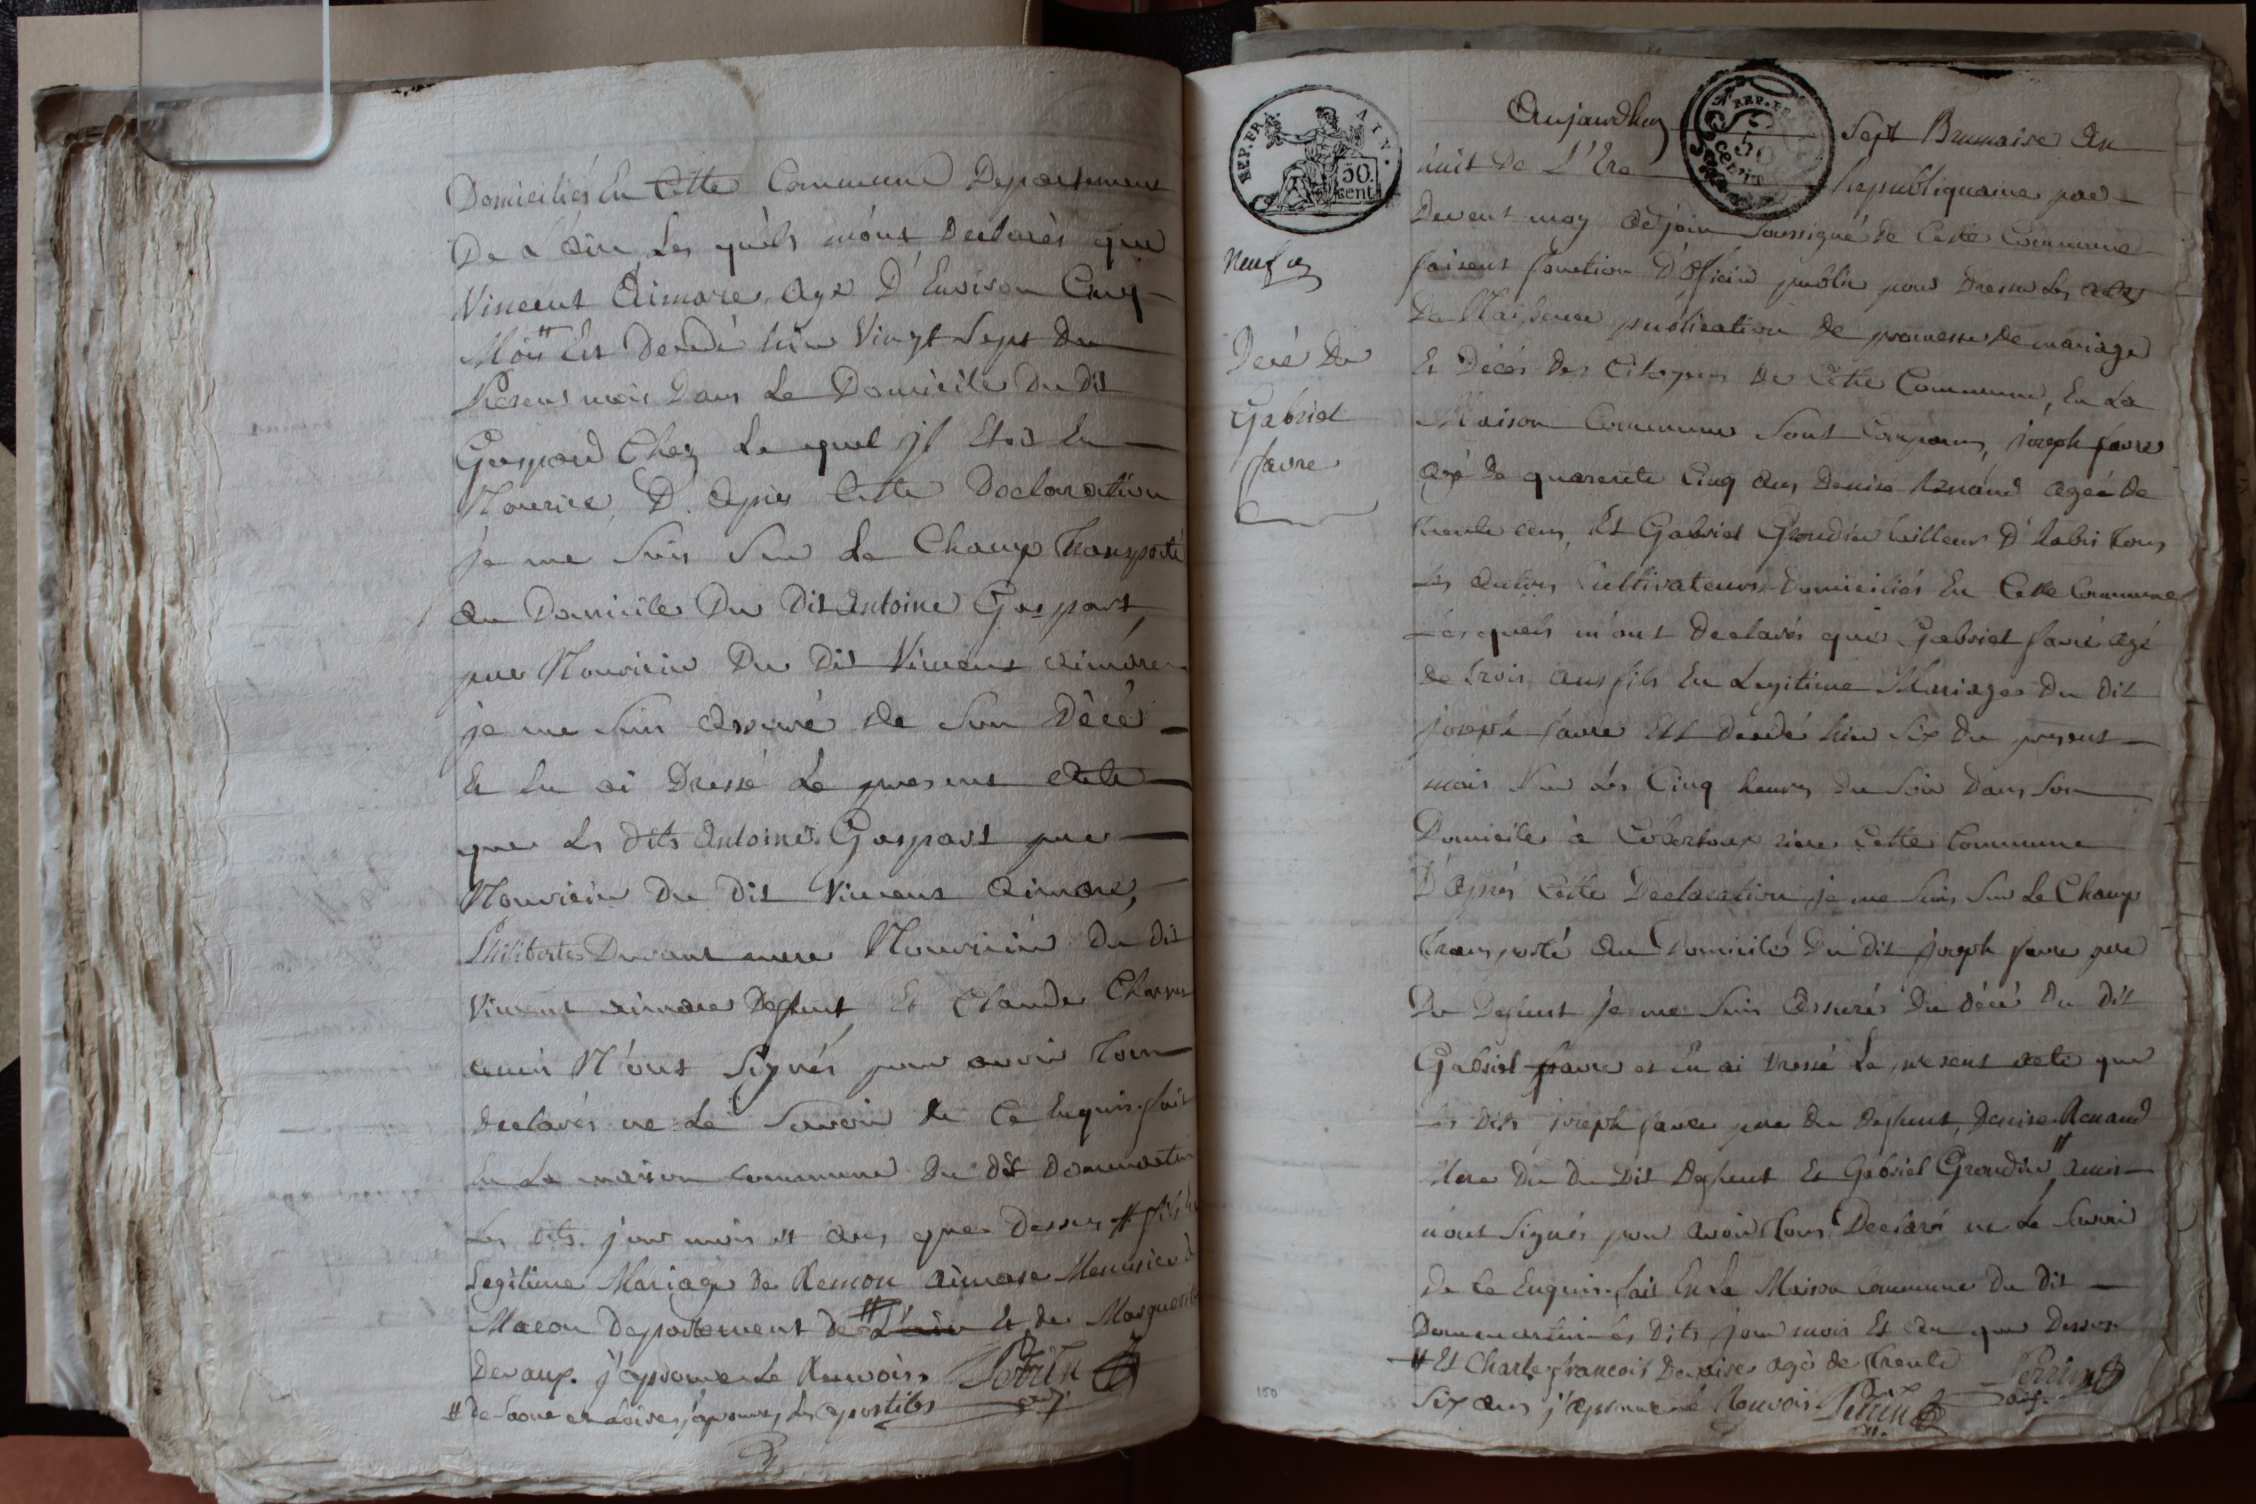 Domiciliés En Cette Commune Departement
De L'Ain Les quels m'ont Declarés que
Vincent Aimare, agé D'Environ Cinq
Mois # Est Decedé hier Vingt Sept du
Présent mois Dans Le Domicile Du dit
Gaspard Chez Le quel jl Etoit En
Nourice, D'apies Cette Declaration
je me suis Sur Le Champ Transporté
au Domicile Du Dit Antoine Gaspart,
pere Nouricier Du Dit Vincent aimare
je me suis assuré de Son Décé
Et En ai Dressé Le present Acte
que Les dits Antoine Gaspart pere
Nouricier Du Dit Vincent Aimare,
Philiberte Durant mere Nouriciere Du Dit
Vincent aimare Defunt Et Claude
amis N'ont Signés pour avoir Tous
declarés ne Le Savoir de Ce Enquis fait
En La maison commune Du dit Dommartin
Les dits jour mois et ans que Dessus #
Legitime Mariage de Remon aimare Menusier
Macon Departement de # L'ain Et de Marguerite
Devaux. j'aprouve Le Renvois Perrin
adj.
# de Saone et Loire, j'aprouve Les apostiles
REP. FRA.
AIN.
50.
cent.
Neuf
Décé De
Gabriel
favre
REP. FR
50
CENT.
Aujourdhuy Sept Brumaire An
huit De L'Ere Republiquaine par
Devent moy adjoin Soussigné de Cette Commune
faisent fonction D'Oficier public pour Dresser Les actes
De Naissence publication de promesse de mariage
Et Décés Des Citoyens De Cette Commune, En La
Maison Commune Sont Comparus, joseph favre
agé de quarente Cinq ans Denise Renaud agée de
trente ans, Et Gabriel Grondin tailleur D'habis tous
Les autres Cultivateurs Domiciliés En Cette Commune
Lesquels m'ont Declarés que Gabriel favre agé
de trois ans fils En Legitime Mariage Du dit
joseph favre Est Décedé hier Six Du present
mois Sur Les Cinq heures du Soir Dans Son
Domicile à riere Cette Commune
D'aprés Cette Declaration je me Suis Sur Le Champ
transporté au Domicile Du dit joseph favre pere
Du Defunt je me Suis assurés Du décé Du dit
Gabriel favre et En ai Dressé Le present acte que
Les Dits joseph favre pere du Defunt, Denise Renaud
Mere Du Du Dit Defunt Et Gabriel Grondin # amis
n'ont Signés pour avoir tous Declaré ne Le Savoir
De Ce Enquis, fait En La Maison Commune Du Dit
Dommartin Les Dits jour mois Et an que Dessus
# Et Charle francois agé de trente
Six ans j'aprouve Le Renvois Perrin
Perrin
adj.
150